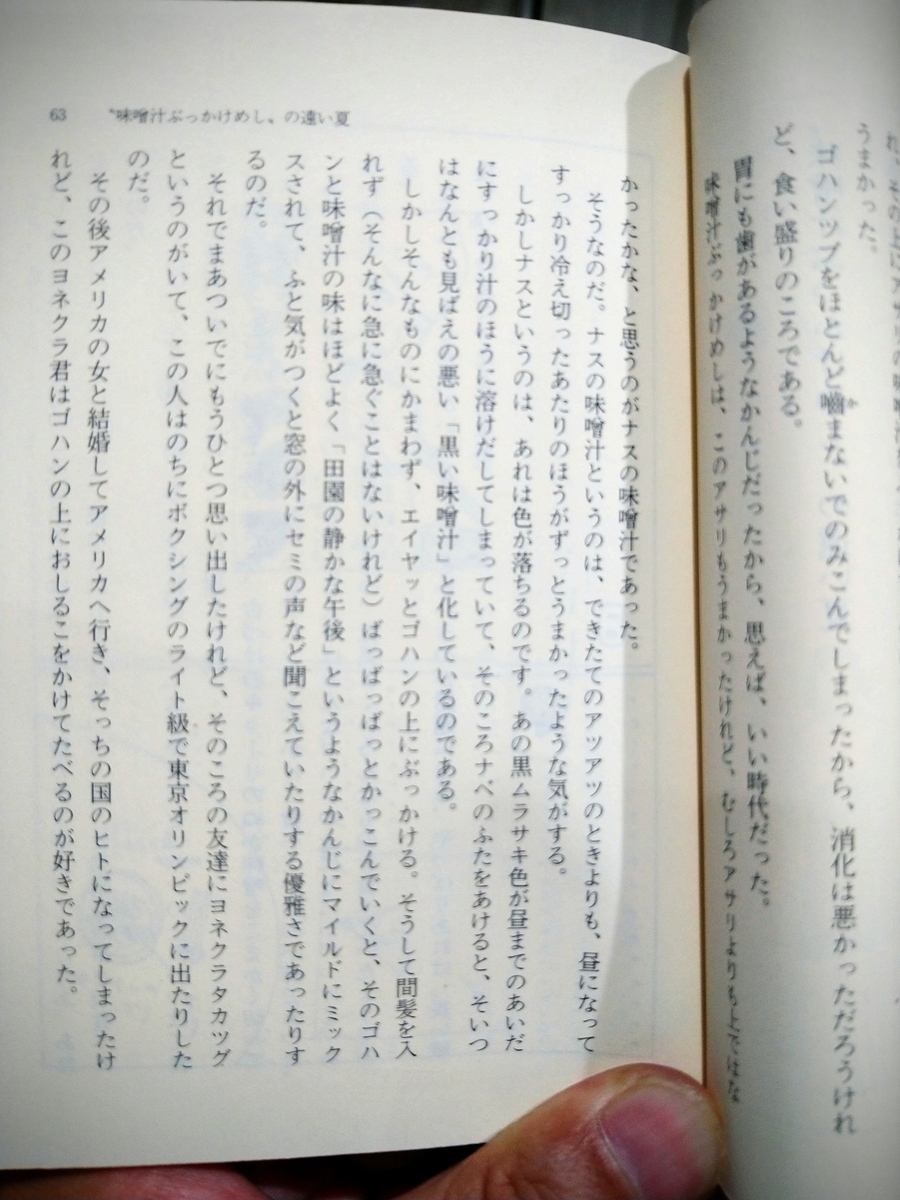 うまかった。
ゴハンツブをほとんど嚙まないでのみこんでしまったから、消化は悪かっただろうけれ
ど、食い盛りのころである。
胃にも歯があるようなかんじだったから、思えば、いい時代だった。
味噌汁ぶっかけめしは、このアサリもうまかったけれど、むしろアサリよりも上ではな
63 〝味噌汁ぶっかけめし〟の遠い夏
かったかな、と思うのがナスの味噌汁であった。
そうなのだ。ナスの味噌汁というのは、できたてのアツアツのときよりも、昼になって
すっかり冷え切ったあたりのほうがずっとうまかったような気がする。
しかしナスというのは、あれは色が落ちるのです。あの黒ムラサキ色が昼までのあいだ
にすっかり汁のほうに溶けだしてしまっていて、そのころナベのふたをあけると、そいつ
はなんとも見ばえの悪い「黒い味噌汁」と化しているのである。
しかしそんなものにかまわず、エイヤッとゴハンの上にぶっかける。そうして間髪を入
れず（そんなに急に急ぐことはないけれど）ばっばっばっとかっこんでいくと、そのゴハ
ンと味噌汁の味はほどよく「田園の静かな午後」というようなかんじにマイルドにミック
スされて、ふと気がつくと窓の外にセミの声など聞こえていたりする優雅さであったりす
るのだ。
それでまあついでにもうひとつ思い出したけれど、そのころの友達にヨネクラタカツグ
というのがいて、この人はのちにボクシングのライト級で東京オリンピックに出たりした
のだ。
その後アメリカの女と結婚してアメリカへ行き、そっちの国のヒトになってしまったけ
れど、このヨネクラ君はゴハンの上におしるこをかけてたべるのが好きであった。